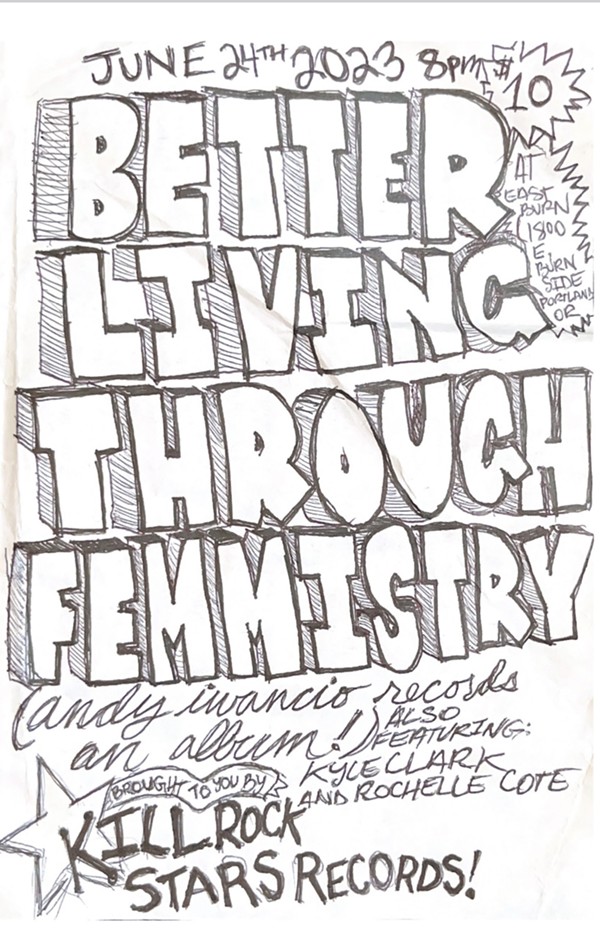 JUNE 24TH 2023 8PM
$10
AT
EAST
BURN
1800
E.
BURN
SIDE
PORTLAND
OR
BETTER
LIVING
THROUGH
FEMMISTRY
(andy iwancio records
an album!)
ALSO
FEATURING:
KYLE CLARK
AND ROCHELLE COTE
BROUGHT TO YOU BY
KILL ROCK
STARS RECORDS!